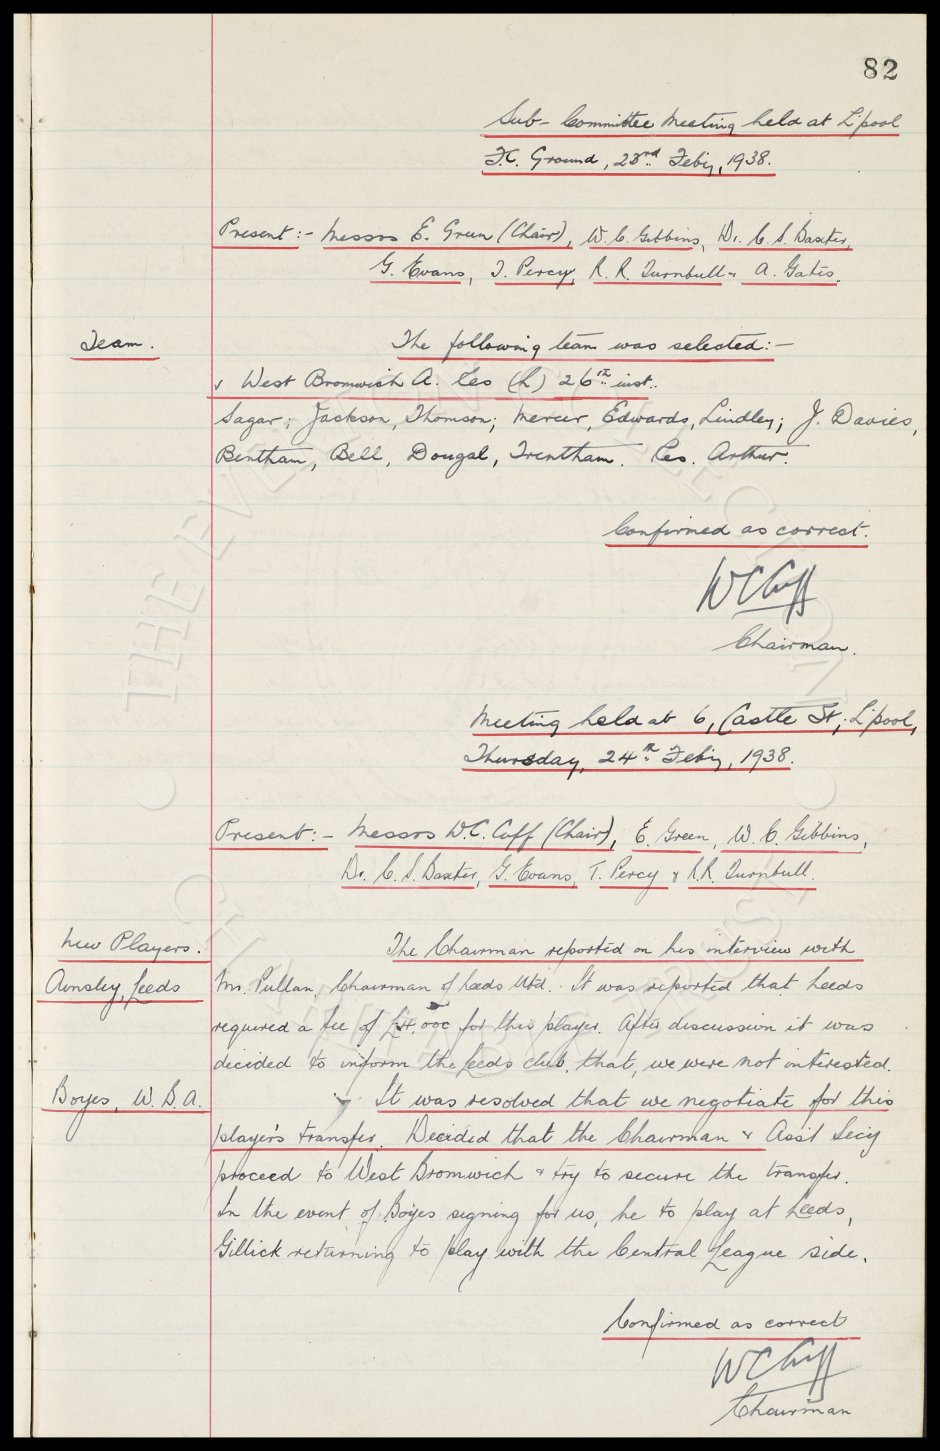 82
Sub-Committee Meeting held at L'pool
F.C. Ground, 23rd Feby, 1938.
Present :- Messrs E. Green (Chair), W. C. Gibbins, Dr. C. S. Baxter,
G. Evans, T. Percy, R. R. Turnbull & A. Gates.
Team.
The following team was selected:-
v West Bromwich A. Res (h) 26th inst.
Sagar; Jackson, Thomson; Mercer, Edwards, Lindley; J. Davies,
Bentham, Bell, Dougal, Trentham. Res. Arthur.
Confirmed as correct.
W C Cuff
Chairman.
Meeting held at 6, Castle St, L'pool,
Thursday, 24th Feby, 1938.
Present:- Messrs W.C. Cuff (Chair), E. Green, W. C. Gibbins,
Dr. C. S. Baxter, G. Evans, T. Percy & R.R. Turnbull.
New Players.
The Chairman reported on his interview with
Ainsley, Leeds
Mr. Pullan, Chairman of Leeds Utd. It was reported that Leeds
required a fee of for this player. After discussion it was
decided to inform the Leeds club, that, we were not interested.
Boyes, W.B.A.
It was resolved that we negotiate for this
player's transfer. Decided that the Chairman & Ass't Secy
proceed to West Bromwich & try to secure the transfer.
In the event of Boyes signing for us, he to play at Leeds,
Gillick returning to play with the Central League side.
Confirmed as correct
W C Cuff
Chairman
THE EVERTON COLLECTION